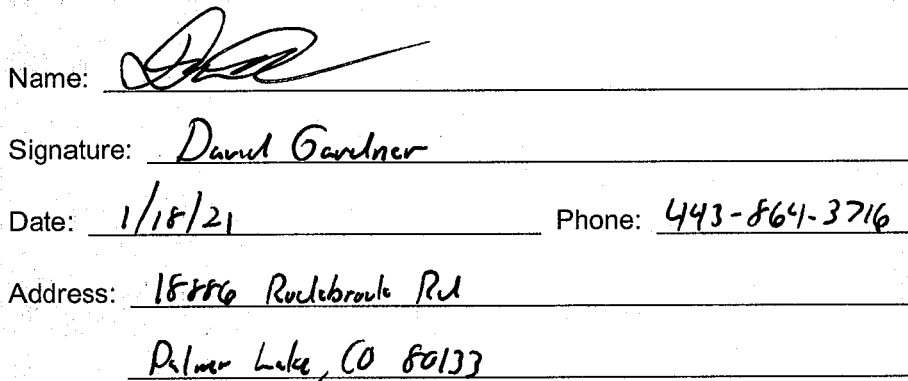 Name:
Signature: David Gardner
Date: 1/18/21 Phone: 443-864-3716
Address: 18886 Rockbrook Rd
Palmer Lake, CO 80133